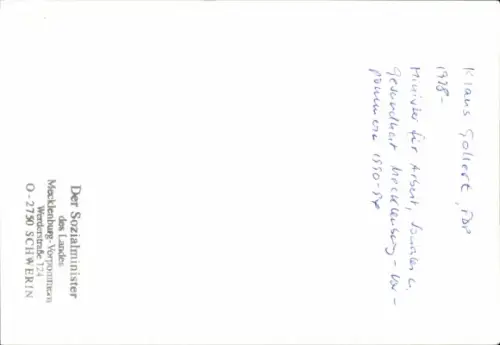 Klaus Gollert, FDP
1938-
Minister für Arbeit, Soziales u.
Gesundheit Mecklenburg-Vor-
pommern 1990-94
Der Sozialminister
des Landes
Mecklenburg-Vorpommern
Werderstraße 124
O-2750 SCHWERIN